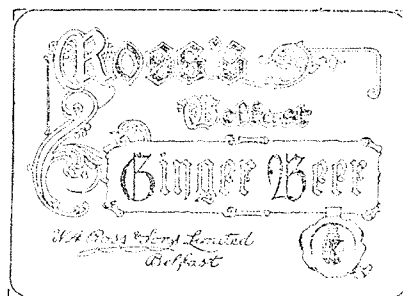 Ross's
Belfast
Ginger Beer
W.A. Ross & Sons Limited
Belfast